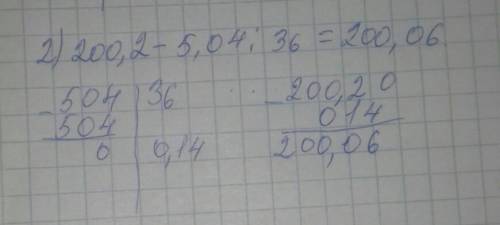 2) 200,2 - 5,04 : 36 = 200,06
- 504 | 36
504
0 | 0,14
- 200,20
014
200,06